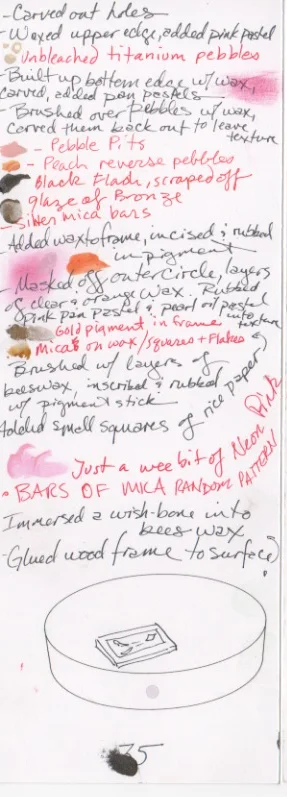 -Carved out holes
-Waxed upper edge, added pink pastel
Unbleached titanium pebbles
-Built up bottom edge w/ wax,
carved, added pan pastels
-Brushed over pebbles w/ wax,
carved them back out to leave
texture
- Pebble Pits
- Peach reverse pebbles
Black Flash, scraped off
glaze of Bronze
-silver mica bars
-Added wax to frame, incised & rubbed
in pigment
-Masked off outer circle, layers
of clear & orange wax. Rubbed
pink pan pastel & pearl oil pastel
into texture
Gold pigment in frame
Micas on wax/squares + Flakes
Brushed w/ layers of
beeswax, inscribed & rubbed
w/ pigment stick
Added small squares of rice paper
Just a wee bit of Neon Pink
• BARS OF MICA RANDOM PATTERN
Immersed a wish-bone into
bees wax
-Glued wood frame to surface
35